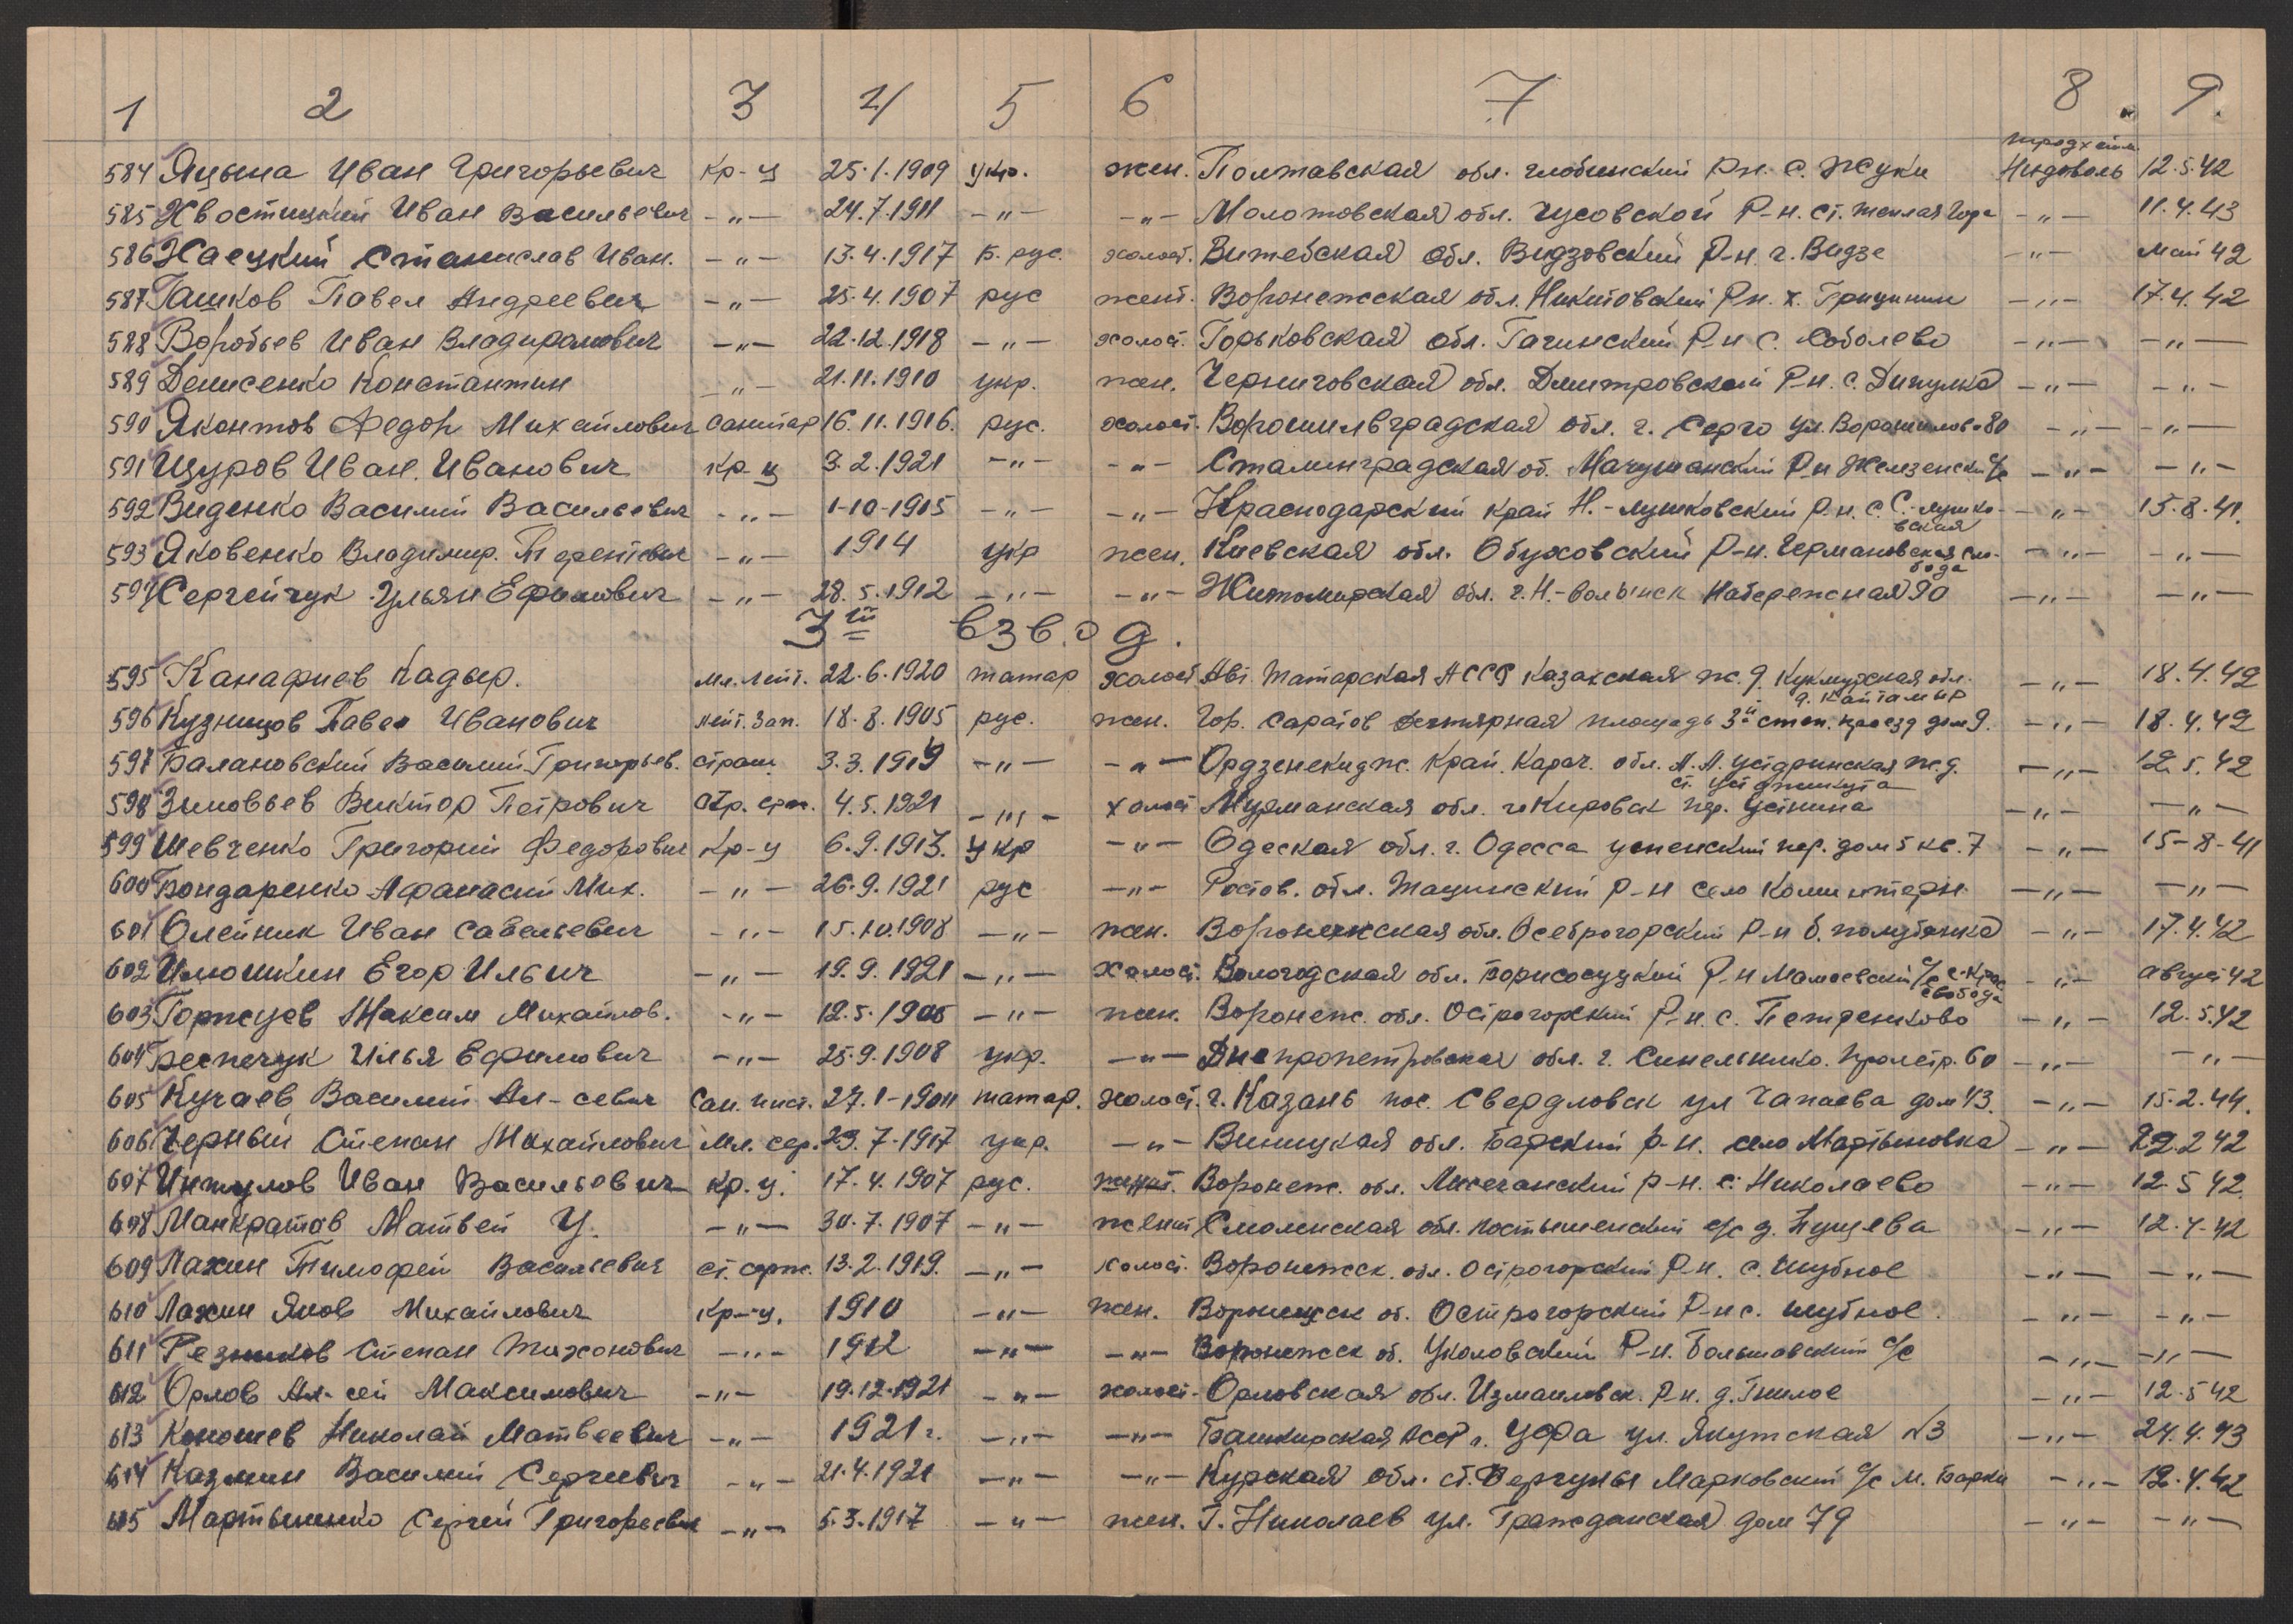 1 2 3 4 5 6 7 8 9.
584 Яцына Иван Григорьевич кр-ц 25.1.1909 укр. жен. Полтавская обл. глобинский р-н. с. Жуки Недоволь 12.5.42
585 Хвостицкий Иван Васильевич -"- 24.7.1911 -"- -"- Молотовская обл. Чусовской Р-н. ст. теплая гора -"- 11.4.43
586 Жаецкий Станислав Иван. -"- 13.4.1917 б. рус. холост. Витебская обл. Видзовский Р-н. г. Видзе -"- май 42
587 Гашков Павел Андреевич -"- 25.4.1907 рус жент. Воронежская обл. Никитовский Р-н. х. Грицинин -"- 17.4.42
588 Воробьев Иван Владирамович -"- 22.12.1918 -"- холост. Горьковская обл. Гагинский Р-н с. Соболево -"- -"-
589 Денисенко Константин -"- 21.11.1910 укр. жен. Черниговская обл. Дмитровский Р-н. с. -"- -"-
590 Яконтов Федор Михайлович санитар 16.11.1916. рус. холост. Ворошилвградская обл. г. Серго ул. Ворошилова 80 -"- -"-
591 Щуров Иван Иванович кр-ц 3.2.1921 -"- -"- Сталинградская об. Р-н с/с -"- -"-
592 Виденко Василий Васильевич -"- 1-10-1915 -"- -"- Краснодарский край Н.-лушковский Р-н. с. С.-лушковская -"- 15.8.41.
593 Яковенко Владимир. Терентевич -"- 1914 укр жен. Киевская обл. Обуховский Р-н. Германовская слобода -"- -"-
594 Сергейчук Ульян Ефимович -"- 28.5.1912 -"- -"- Житомирская обл. г. Н.-волынск Набережная 90 -"- -"-
3ий взвод.
595 Канафиев Кадыр. мл. лейт. 22.6.1920 татар холост Авт. Татарская АССР Казахская ж. д. Кукмурская обл. д. Кайтамыр -"- 18.4.42
596 Кузницов Павел Иванович лейт. зап. 18.8.1905 рус. жен. Гор. Саратов дегтярная площадь 3й степ. проезд дом 9. -"- 18.4.42
597 Балановский Василий Григорьев. старш. 3.3.1919 -"- -"- Ордзенекидж. Край. Карач. обл. ж.д. ст. -"- 12.5.42
598 Зиновьев Виктор Петрович стр. срж. 4.5.1921 -"- холост Мурманская обл. г. Кировск пер. Устинина -"- -"-
599 Шевченко Григорий Федорович Кр-ц 6.9.1913. укр -"- Одеская обл. г. Одесса успенский пер. дом 5 кв. 7 -"- 15-8-41
600 Бондаренко Афанасий Мих. -"- 26.9.1921 рус -"- Ростов. обл. Тацинский р-н село Коминтерн -"- -"-
601 Олейник Иван Савельевич -"- 15.10.1908 -"- жен. Воронежская обл. Осеброгорский Р-н б. полубянка -"- 17.4.42
602 Илюшкин Егор Ильич -"- 19.9.1921 -"- холост. Вологодская обл. Борисосудкой Р-н с/с с. Крас свобода -"- август 42
603 Горжцев Максим Михайлов. -"- 12.5.1905 -"- жен. Воронеж. обл. Острогорский Р-н. с. Петренково -"- 12.5.42
604 Греспечук Илья Ефимович -"- 25.9.1908 укр. -"- Днепропетровская обл. г. Синельнико. Пролетр. 60 -"- -"-
605 Кучаев Василий Ал-севич Сан. инст. 27.1-1911 татар. холост. г. Казань пос. Свердловск ул Чапаева дом 43. -"- 15.2.44.
606 Черный Степан Михайлович Мл. сер. 23.7-1917 укр. -"- Виницкая обл. Барский р-н. село Мартыновка -"- 22.2.42
607 Инжулов Иван Васильевич кр.ц. 17.4.1907 рус. женат. Воронеж. обл. Р-н. с. Николаево -"- 12.5 42.
608 Манкратов Матвей У. -"- 30.7.1907 -"- женат Смоленская обл. с/с д. Пущева -"- 12.4.42
609 Лахин Тимофей Васильевич ст. серж. 13.2.1919. -"- холост. Воронежск. обл. Острогорский Р-н. с. Шубное -"- -"-
610 Лахин Яков Михайлович Кр-ц. 1910 -"- жен. Воронежск об. Острогорский Р-н с. шубное. -"- -"-
611 Резников Степан Тихонович -"- 1912 -"- -"- Воронежск об. Уколовский Р-н. с/с -"- -"-
612 Орлов Ал-сей Максимович -"- 19.12.1921 -"- холост. Орловская обл. Измаиловск. Р-н. д. Гнилое -"- 12.5 42
613 Коношев Николай Матвеевич -"- 1921 г. -"- -"- Башкирская АССР г. Уфа ул. Якутская №3 -"- 24.4.43
614 Казмин Василий Сергиевич -"- 21.4.1921 -"- -"- Курская обл. ст. Марковский с/с м. Барки -"- 12.4.42
615 Мартыненко Сергей Григорьевич -"- 5.3.1917 -"- жен. Г. Николаев ул. Гражданская дом 79 -"- -"-